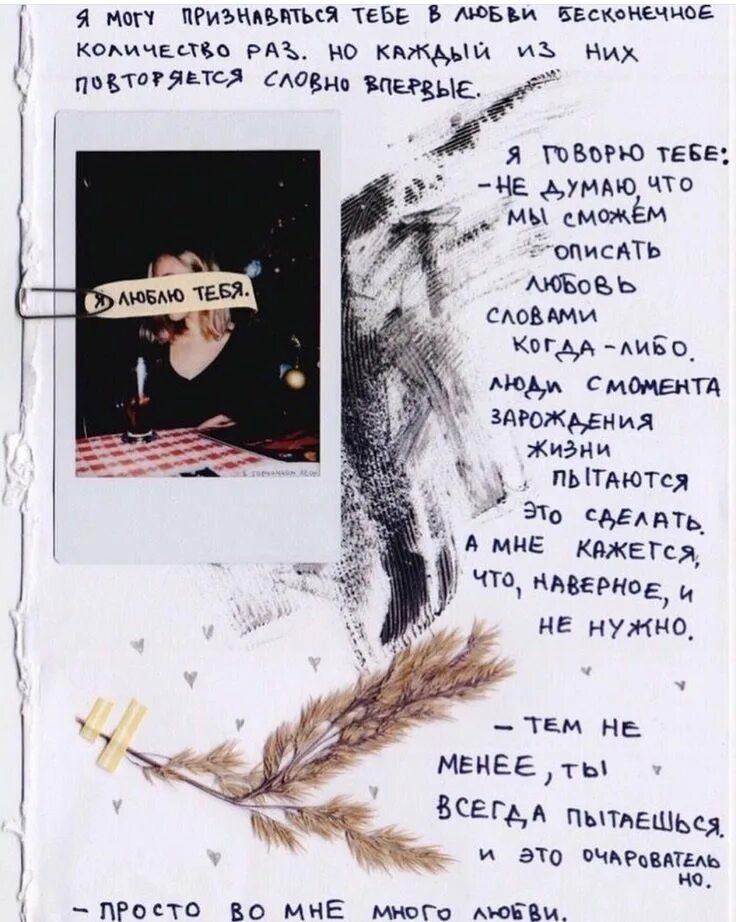 Я МОГУ ПРИЗНАВАТЬСЯ ТЕБЕ В ЛЮБВИ БЕСКОНЕЧНОЕ
КОЛИЧЕСТВО РАЗ. НО КАЖДЫЙ ИЗ НИХ
ПОВТОРЯЕТСЯ СЛОВНО ВПЕРВЫЕ.
Я ЛЮБЛЮ ТЕБЯ.
Я ГОВОРЮ ТЕБЕ:
- НЕ ДУМАЮ, ЧТО
МЫ СМОЖЕМ
ОПИСАТЬ
ЛЮБОВЬ
СЛОВАМИ
КОГДА-ЛИБО.
ЛЮДИ С МОМЕНТА
ЗАРОЖДЕНИЯ
ЖИЗНИ
ПЫТАЮТСЯ
ЭТО СДЕЛАТЬ.
А МНЕ КАЖЕТСЯ,
ЧТО, НАВЕРНОЕ, И
НЕ НУЖНО.
- ТЕМ НЕ
МЕНЕЕ, ТЫ
ВСЕГДА ПЫТАЕШЬСЯ.
И ЭТО ОЧАРОВАТЕЛЬ
НО.
- ПРОСТО ВО МНЕ МНОГО ЛЮБВИ.